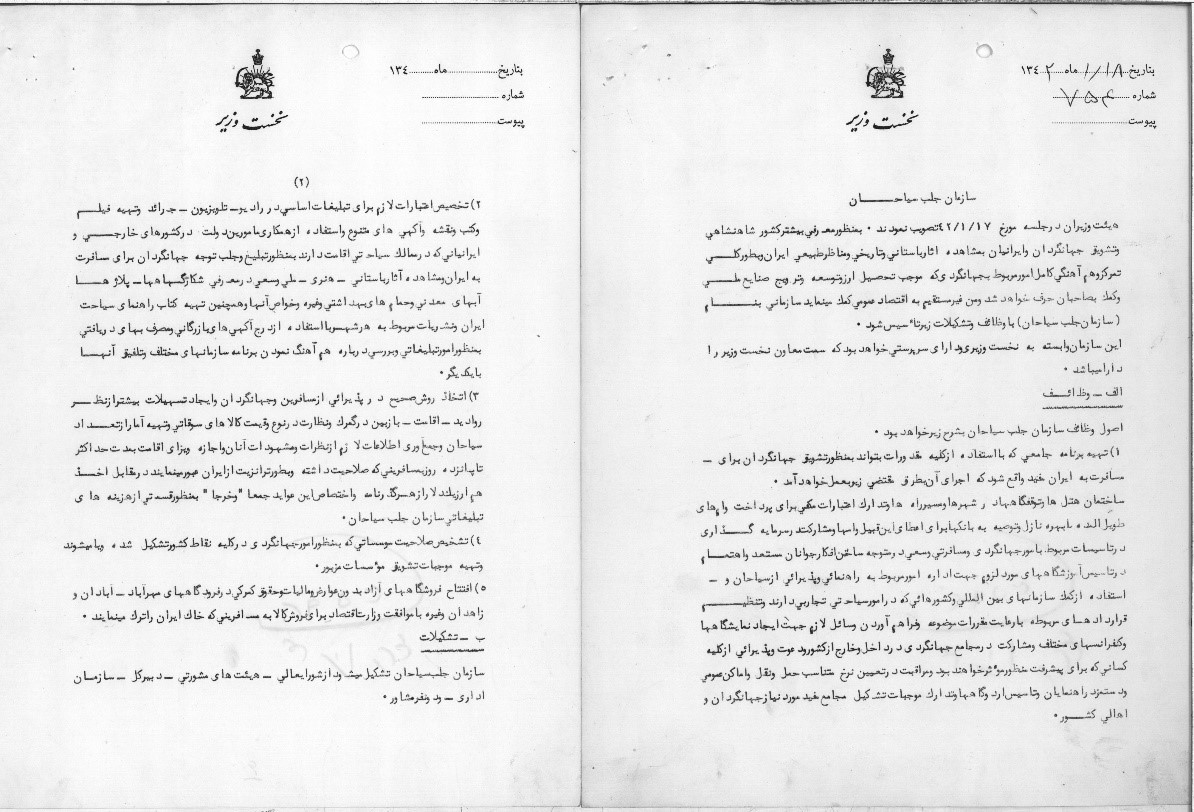 بتاریخ ۱۸/۱/ ماه ۱۳۴۲
شماره ۷۵۴
پیوست
نخست وزیر
سازمان جلب سیاحان
هیئت وزیران در جلسه مورخ ۴۲/۱/۱۷ تصویب نمودند ۰ بمنظور معرفي بیشتر کشور شاهنشاهي
وتشویق جهانگردان وایرانیان بمشاهده آثار باستاني وتاریخي ومناظر طبیعي ایران وبطورکلي
تمرکز وهم آهنگي کامل امور مربوط بجهانگردي که موجب تحصیل ارز وتوسعه وترویج صنایع ملي
وکمك بصاحبان حرف خواهد شد ومن غیر مستقیم به اقتصاد عمومي کمك مینماید سازماني بنام
(سازمان جلب سیاحان) با وظائف وتشکیلات زیر تأسیس شود ۰
این سازمان وابسته به نخست وزیري ودارای سرپرستي خواهد بود که سمت معاون نخست وزیر را
دارا میباشد ۰
الف ــ وظائف
اصول وظائف سازمان جلب سیاحان بشرح زیر خواهد بود ۰
۱) تهیه برنامه جامعي که با استفاده از کلیه مقدورات بتواند بمنظور تشویق جهانگردان برای ــ
مسافرت به ایران مفید واقع شود که اجرای آن بطرق مقتضي زیر بعمل خواهد آمد ۰
ساختمان هتل ها وتوقفگاهها در شهرها ومسیر راه ها وتدارك اعتبارات مکفي برای پرداخت وام های
طویل المده با بهره نازل وتوصیه به بانکها برای اعطای این قبیل وامها ومشارکت در سرمایه گذاری
در تاسیسات مربوط با مور جهانگردي ومسافرتي وسعي در متوجه ساختن افکار جوانان مستعد واهتمام
در تاسیس آموزشگاههای مورد لزوم جهت اداره امور مربوط به راهنمائي وپذیرائي از سیاحان و ــ
استفاده از کمك سازمانهای بین المللي وکشورهائي که در امور سیاحتي تجاربي دارند وتنظیم
قراردادهای مربوطه با رعایت مقررات موضوعه وفراهم آوردن وسائل لازم جهت ایجاد نمایشگاهها
وکنفرانسهای مختلف ومشارکت در مجامع جهانگردي در داخل وخارج از کشور ودعوت وپذیرائي از کلیه
کساني که برای پیشرفت منظور موثر خواهند بود ومراقبت در تعیین نرخ متناسب حمل ونقل واماکن عمومي
ودستمزد راهنمایان وتاسیس اردوگاهها وتدارك موجبات تشکیل مجامع مفید مورد نیاز جهانگردان و
اهالي کشور ۰
بتاریخ ماه ۱۳۴
شماره
پیوست
نخست وزیر
(۲)
۲) تخصیص اعتبارات لازم برای تبلیغات اساسي در رادیو ــ تلویزیون ــ جرائد وتهیه فیلم
وکتب ونقشه وآگهي های متنوع واستفاده از همکاری مامورین دولت در کشورهای خارجي و
ایرانیاني که در ممالك سیاحتي اقامت دارند بمنظور تبلیغ وجلب توجه جهانگردان برای مسافرت
به ایران ومشاهده آثار باستاني ــ هنری ــ ملي وسعي در معرفي شکارگاهها ــ پلاژها
آبهای معدني وحمام های بهداشتي وغیره وخواص آنها وهمچنین تهیه کتاب راهنمای سیاحت
ایران ونشریات مربوط به هر شهر با استفاده از درج آگهي های بازرگاني ومصرف بهای دریافتي
بمنظور امور تبلیغاتي وبررسي درباره هم آهنگ نمودن برنامه سازمانهای مختلف وتلفیق آنها
با یکدیگر ۰
۳) اتخاذ روش صحیح در پذیرائي از مسافرین وجهانگردان وایجاد تسهیلات بیشتر از نظر
روادید ــ اقامت ــ بازبین در گمرك ونظارت در نوع وقیمت کالاهای سوقاتي وتهیه آمار از تعداد
سیاحان وجمع آوری اطلاعات لازم از نظرات ومشهودات آنان واجازه ویزای اقامت بمدت حداکثر
تا پانزده روز بمسافریني که صلاحیت داشته وبطور ترانزیت از ایران عبور مینمایند در مقابل اخذ
هم ارز یك دلار از هر گذرنامه واختصاص این عواید جمعا "وخرجا" بمنظور قسمتي از هزینه های
تبلیغاتي سازمان جلب سیاحان ۰
۴) تشخیص صلاحیت موسساتي که بمنظور امور جهانگردي در کلیه نقاط کشور تشکیل شده ویا میشوند
وتهیه موجبات تشویق مؤسسات مزبور ۰
۵) افتتاح فروشگاههای آزاد بدون عوارض ومالیات وحقوق گمرکي در فرودگاههای مهرآباد ــ آبادان و
زاهدان وغیره با موافقت وزارت اقتصاد برای فروش کالا به مسافریني که خاك ایران را ترك مینمایند ۰
ب ــ تشکیلات
سازمان جلب سیاحان تشکیل میشود از شورایعالي ــ هیئت های مشورتي ــ دبیرکل ــ سازمان
اداری ــ ودونفر مشاور ۰